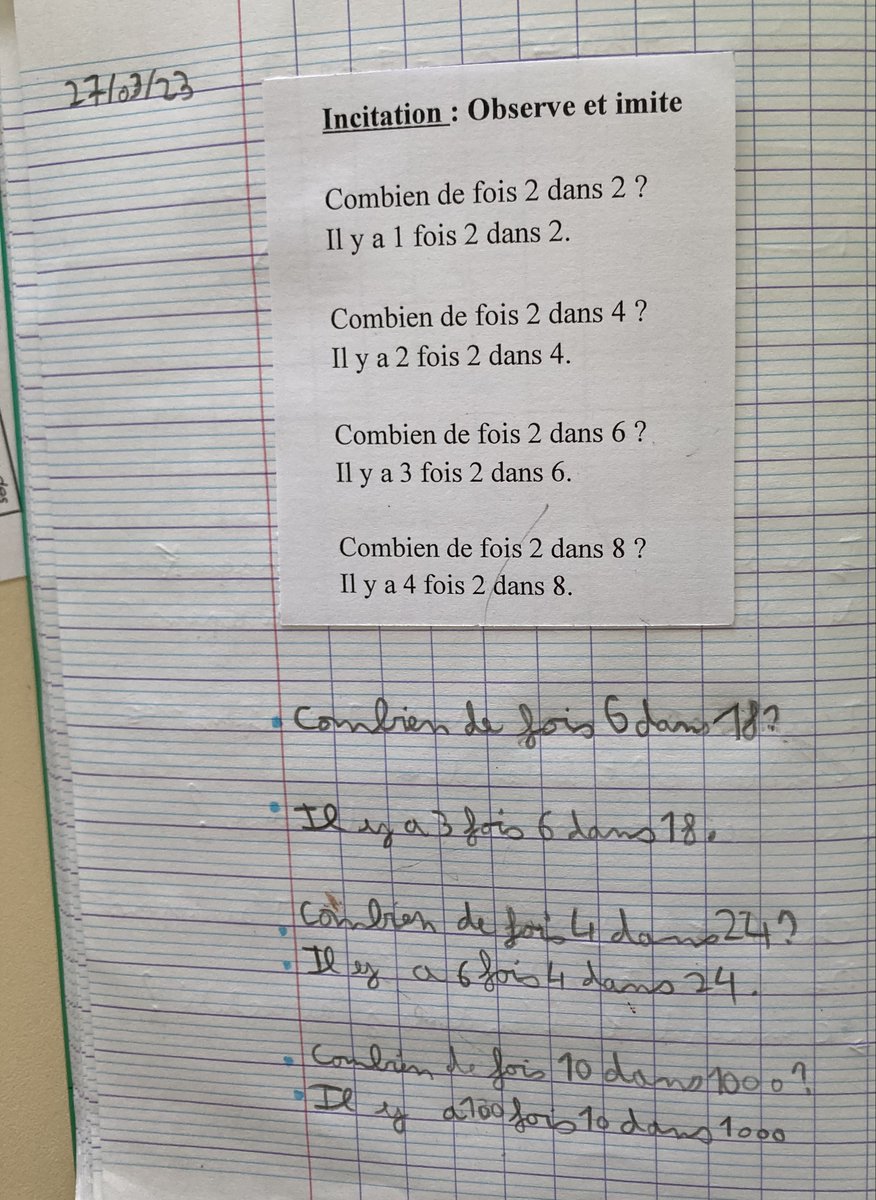 27/03/23
Incitation : Observe et imite
Combien de fois 2 dans 2 ?
Il y a 1 fois 2 dans 2.
Combien de fois 2 dans 4 ?
Il y a 2 fois 2 dans 4.
Combien de fois 2 dans 6 ?
Il y a 3 fois 2 dans 6.
Combien de fois 2 dans 8 ?
Il y a 4 fois 2 dans 8.
Combien de fois 6 dans 18 ?
Il y a 3 fois 6 dans 18.
Combien de fois 4 dans 24 ?
Il y a 6 fois 4 dans 24.
Combien de fois 10 dans 1000 ?
Il y a 100 fois 10 dans 1000